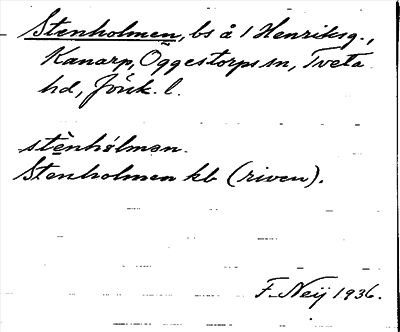 Stenholmen, bs å 1 Henriksg.,
Kanarp, Öggestorps sn, Tveta
hd, Jönk. l.
stènhólmən.
Stenholmen kb (riven).
F. Neij 1936.